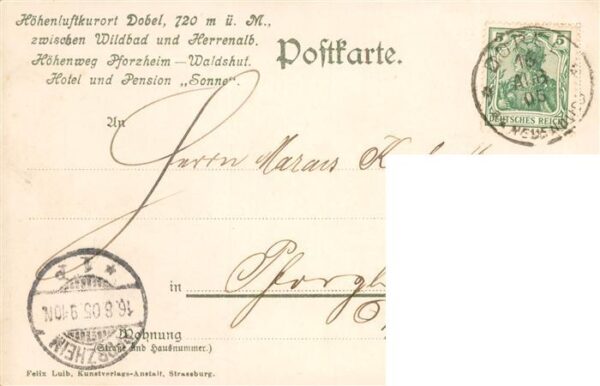 Höhenluftkurort Dobel, 720 m ü. M.,
zwischen Wildbad und Herrenalb.
Höhenweg Pforzheim — Waldshut.
Hotel und Pension „Sonne“.
Postkarte.
5 5
DEUTSCHES REICH
16
AUG
05
An
Herrn
in
Wohnung
(Straße und Hausnummer.)
PFORZHEIM
16.8.05.9-10N.
* 1 *
Felix Luib, Kunstverlags-Anstalt, Strassburg.